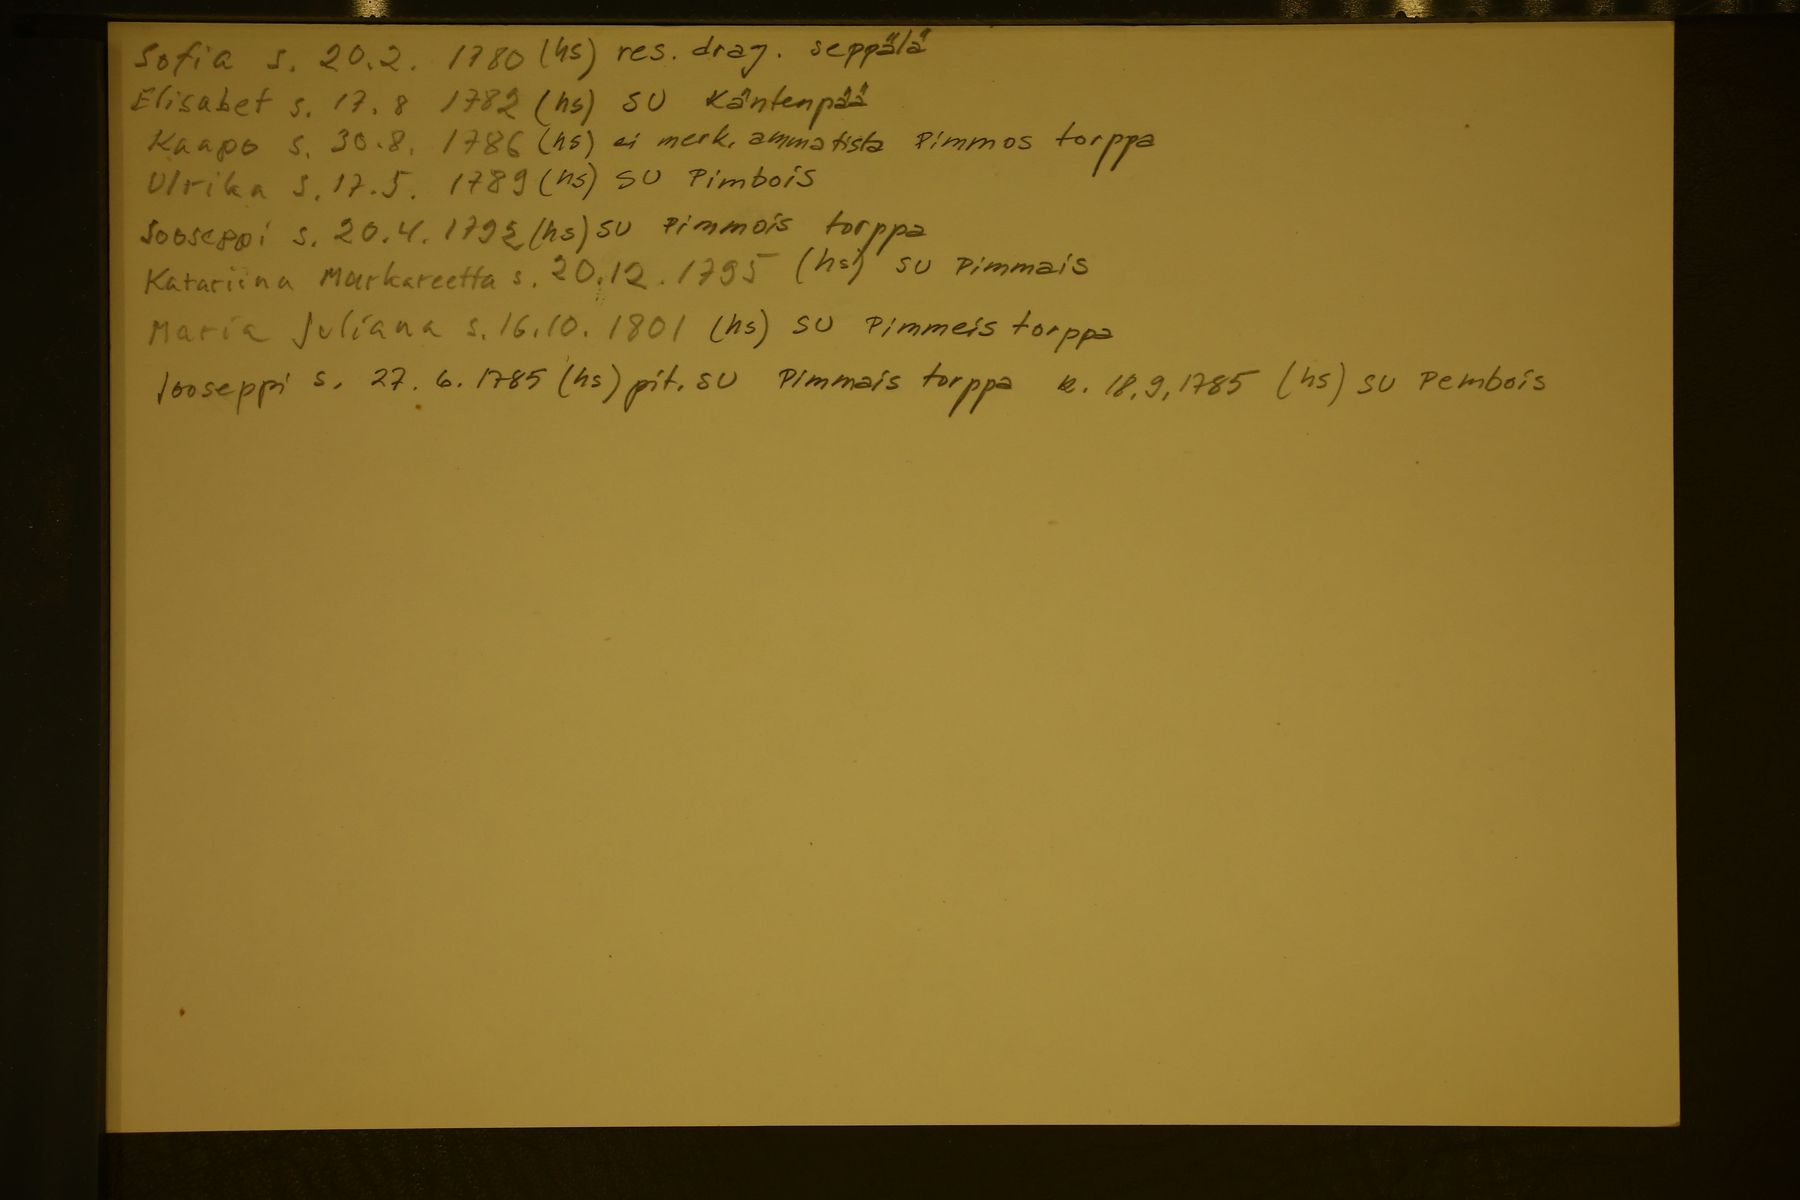 Sofia s. 20.2. 1780 (hs) res. drag. seppälä
Elisabet s. 17.8 1782 (hs) SU Käntenpää
Kaapo s. 30.8. 1786 (hs) ei merk. ammatista Pimmos torppa
Ulrika s. 17.5. 1789 (hs) SU Pimbois
Jooseppi s. 20.4. 1792 (hs) SU Pimmois torppa
Katariina Markareetta s. 20.12. 1795 (hs) SU Pimmais
Maria Juliana s. 16.10. 1801 (hs) SU Pimmeis torppa
Jooseppi s. 27. 6. 1785 (hs) pit. SU Pimmais torppa k. 18.9.1785 (hs) SU Pembois